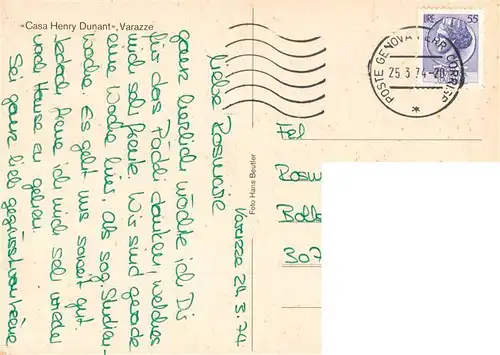 «Casa Henry Dunant», Varazze
Varazze 24.3.74
Liebe Rosmarie
ganz herzlich möchte ich Dir
für das Päckli danken, welches
mich sehr freute. Wir sind gerade
eine Woche hier. Als sog. Studien-
woche. Es geht uns soweit gut
jedoch freue ich mich sehr wieder
nach Hause zu gehen.
Sei ganz lieb gegrüsst von
Foto Hans Beutler
LIRE 55
POSTE GENOVA FERR. CORRISP.
25.3.74-20
*
Frl
Rosm
307